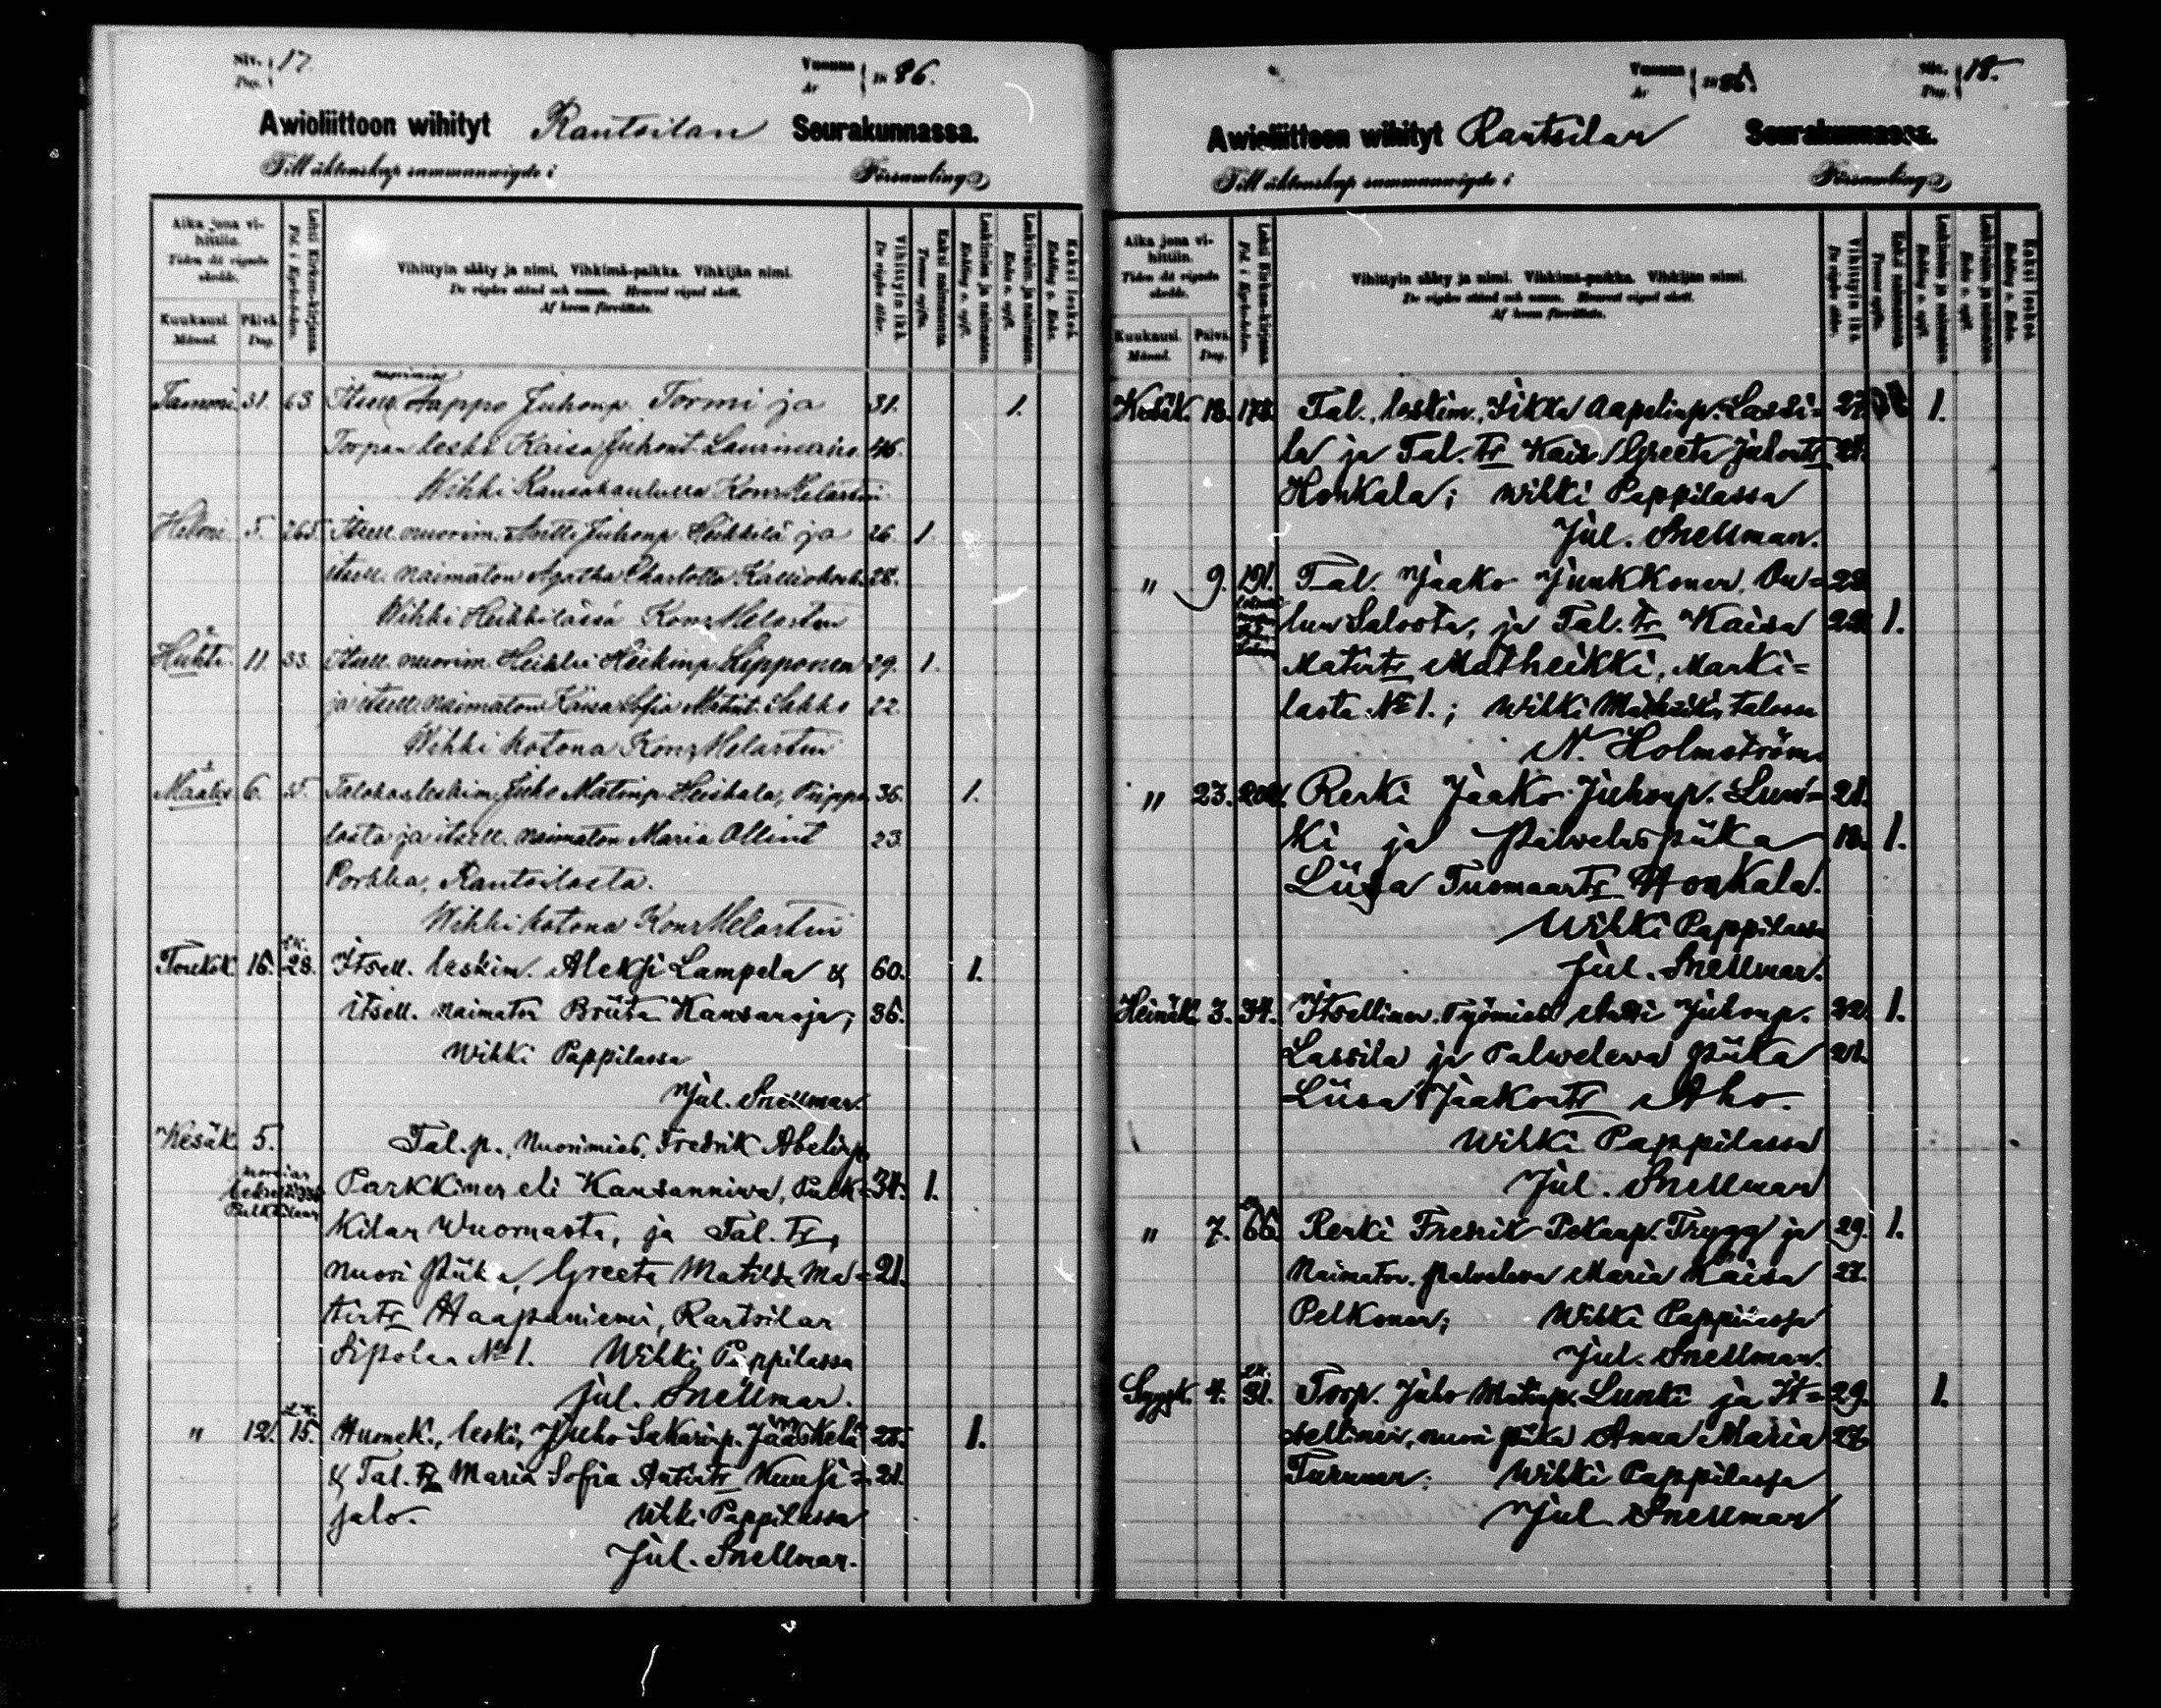 Siv. Pag. 17.
Vuonna År 1886.
Awioliittoon wihityt Rantsilan Seurakunnassa.
Till äktenskap sammanwigde i Församling
Aika jona vihittiin.
Tiden då vigseln skedde.
Kuukausi. Månad.
Päivä. Dag.
Lehti Kirkon-kirjassa.
Fol. i Kyrko-boken.
Vihittyin sääty ja nimi, Vihkimä-paikka. Vihkijän nimi.
De vigdes stånd och namn. Hvarest vigsel skett.
Af hvem förrättats.
Vihittyin ikä.
De vigdes ålder.
Kaksi naimatonta.
Tvenne ogifta.
Leskimies ja naimaton.
Enkling o. ogift.
Leskivaimo ja naimaton.
Enka o. ogift.
Kaksi leskeä.
Enkling o. Enka.
Tammi. 31. 63 Itsell. nuorimies Tappo Juhonp. Tormi ja 31. 1.
Torpan leski Kaisa Juhont. 46.
Wihki Kansakoulussa Konr Melartin
Helmi. 5. 265. Itsell. nuorim. Antti Juhonp. Heikkilä ja 26. 1.
itsell. naimaton Agatha Charlotta 28.
Wihki Heikkilässä Konr Melartin
Huhti. 11. 33. Itsell. nuorim. Heikki Heikinp. Lipponen 29. 1.
ja itsell. naimaton Kaisa Sofia Matint. Sakko 22.
Wihki kotona Konr Melartin
Maalis. 6. Talokas leskim. Juho Matinp. Heiskala, Pippo 36. 1.
lasta ja itsell. naimaton Maria Ollint 23.
Porkka, Rantsilasta.
Wihki kotona Konr Melartin
Toukok. 16. 28. Itsell. leskim. Aleksi Lampela & 60. 1.
itsell. naimaton Briita Kansanoja; 36.
Wihki Pappilassa
Jul. Snellman.
Kesäk. 5. Tal. p., Nuorimies, Fredrik Abelinp.
Parkkinen eli Kansanniva, Pulk= 34. 1.
kilan Wuornasta, ja Tal. tr,
nuori piika, Greeta Matilda Ma= 21.
tintr Haapaniemi, Rantsilan
Sipolan No 1. Wihki Pappilassa
Jul. Snellman.
" 12. L.K. 15. Huonek., leski, Juho Sakarinp. Jääskelä 28. 1.
& Tal. tr Maria Sofia Antintr Kuusi= 21.
salo. Wihki Pappilassa
Jul. Snellman.
Vuonna År 1886.
Siv. Pag. 18.
Awioliittoon wihityt Rantsilan Seurakunnassa.
Till äktenskap sammanwigde i Församling
Aika jona vihittiin.
Tiden då vigseln skedde.
Kuukausi. Månad.
Päivä. Dag.
Lehti Kirkon-kirjassa.
Fol. i Kyrko-boken.
Vihittyin sääty ja nimi. Vihkimä-paikka. Vihkijän nimi.
De vigdes stånd och namn. Hvarest vigsel skett.
Af hvem förrättats.
Vihittyin ikä.
De vigdes ålder.
Kaksi naimatonta.
Tvenne ogifta.
Leskimies ja naimaton.
Enkling o. ogift.
Leskivaimo ja naimaton.
Enka o. ogift.
Kaksi leskeä.
Enkling o. Enka.
Kesäk. 18. 178. Tal., leskim., Iikka Aapelinp. Lassi= 27. 1.
la ja Tal. tr Kaisa Greeta Juhontr 21.
Honkala; Wihki Pappilassa
Jul. Snellman.
" 9. 191. Tal. Jaako Junkkonen, Ou= 28
lun Salosta, ja Tal. tr Kaisa 22. 1.
Matintr Matheikki, Manki=
lasta No 1.; Wihki Matheikin talossa
N. Holmström.
" 23. Renki Jaako Juhonp. Lun= 21.
ki ja Palveluspiika 18. 1.
Liisa Tuomaantr Honkala.
Wihki Pappilassa
Jul. Snellman.
Heinäk. 3. 34. Itsellinen. Työmies Antti Juhonp. 22. 1.
Lassila ja Palweleva piika 21.
Liisa Jaakontr Aho.
Wihki Pappilassa
Jul. Snellman
" 7. 66. Renki Fredrik Pekanp. Trygg ja 29. 1.
Naimaton. palveleva Maria Kaisa 27.
Pelkonen; Wihki Pappilassa
Jul. Snellman.
Syysk. 4. 31. Torp. Juho Matinp. Lunki ja It= 29. 1.
sellinen, nuori piika Anna Maria 27
Turunen. Wihki Pappilassa
Jul Snellman